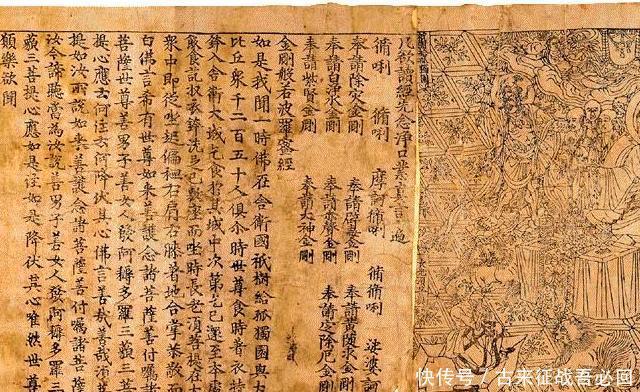 凡欲讀經先念淨口業真言一遍
脩唎 脩唎 摩訶脩唎 脩脩唎 娑婆訶
奉請除灾金剛 奉請辟毒金剛 奉請黃隨求金剛
奉請白淨水金剛 奉請赤聲金剛 奉請定除厄金剛
奉請紫賢金剛 奉請大神金剛
金剛般若波羅蜜經
如是我聞一時佛在舍衛國祇樹給孤獨園與大
比丘眾千二百五十人俱爾時世尊食時著衣持
鉢入舍衛大城乞食於其城中次第乞已還至本處
飯食訖收衣鉢洗足已敷座而坐時長老須菩提在大
眾中即從座起偏袒右肩右膝著地合掌恭敬而
白佛言希有世尊如來善護念諸菩薩善付囑諸
菩薩世尊善男子善女人發阿耨多羅三藐三菩
提心應云何住云何降伏其心佛言善哉善哉須菩
提如汝所說如來善護念諸菩薩善付囑諸菩薩
汝今諦聽當為汝說善男子善女人發阿耨多羅三
藐三菩提心應如是住如是降伏其心唯然世尊
願樂欲聞
快传号／古来征战吾必网